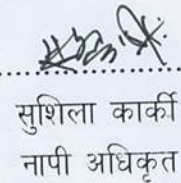 सुशिला कार्की
नापी अधिकृत